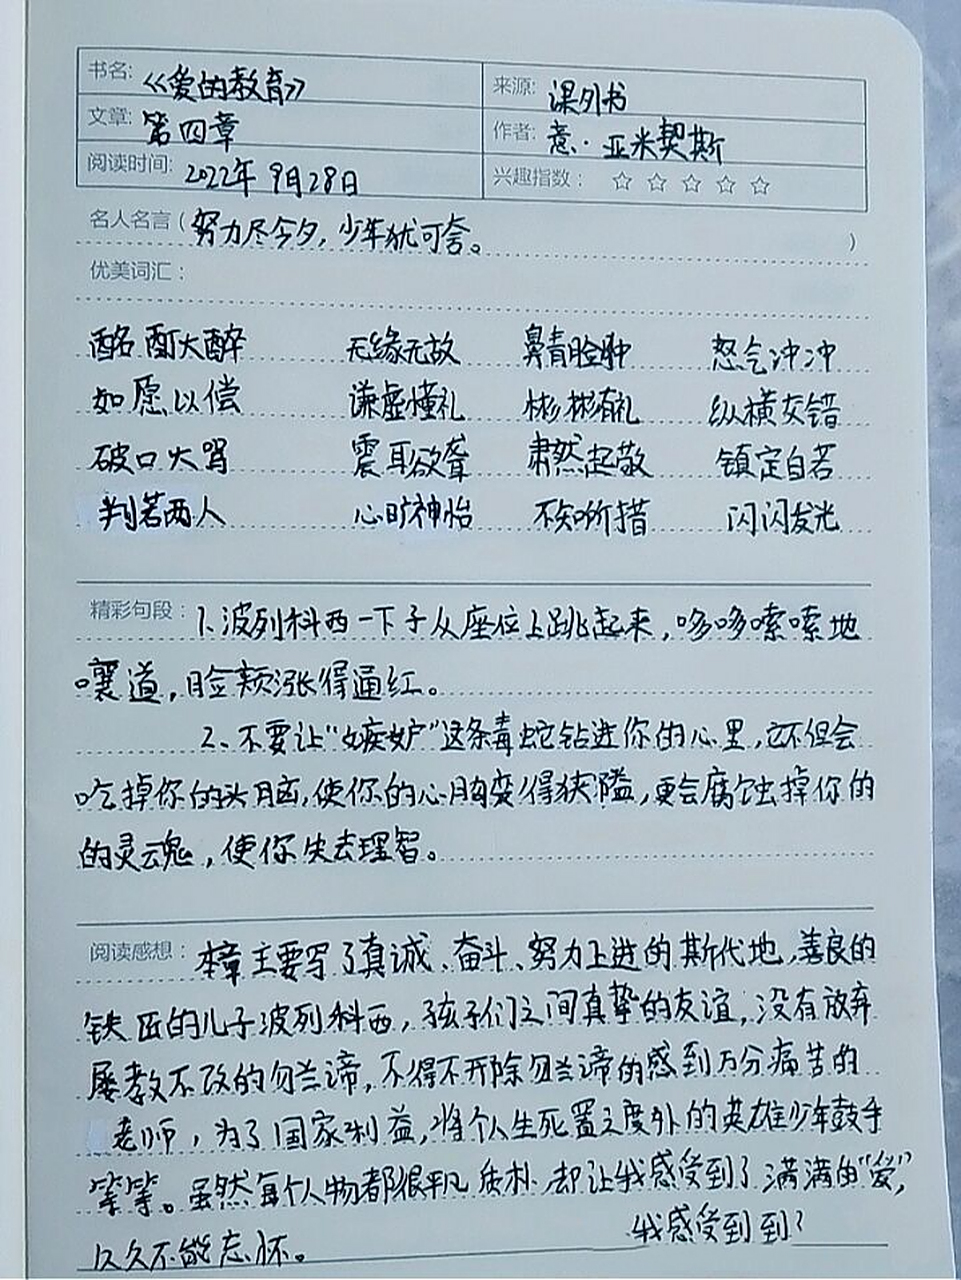 书名: 《爱的教育》 来源: 课外书
文章: 第四章 作者: 意·亚米契斯
阅读时间: 2022年9月28日 兴趣指数: ☆ ☆ ☆ ☆ ☆
名人名言 ( 努力尽今夕，少年犹可夸。 )
优美词汇:
酩酊大醉 无缘无故 鼻青脸肿 怒气冲冲
如愿以偿 谦虚懂礼 彬彬有礼 纵横交错
破口大骂 震耳欲聋 肃然起敬 镇定自若
判若两人 心旷神怡 不知所措 闪闪发光
精彩句段: 1、波列科西一下子从座位上跳起来，哆哆嗦嗦地
嚷道，脸颊涨得通红。
2、不要让“嫉妒”这条毒蛇钻进你的心里，它不但会
吃掉你的头脑，使你的心胸变得狭隘，更会腐蚀掉你的
的灵魂，使你失去理智。
阅读感想: 本章主要写了真诚、奋斗、努力上进的斯代地，善良的
铁匠的儿子波列科西，孩子们之间真挚的友谊，没有放弃
屡教不改的勿兰谛，不得不开除勿兰谛的感到万分痛苦的
老师，为了国家利益，将个人生死置之度外的英雄少年鼓手
等等。虽然每个人物都很平凡质朴，却让我感受到了满满的“爱”，
久久不能忘怀。 我感受到到了